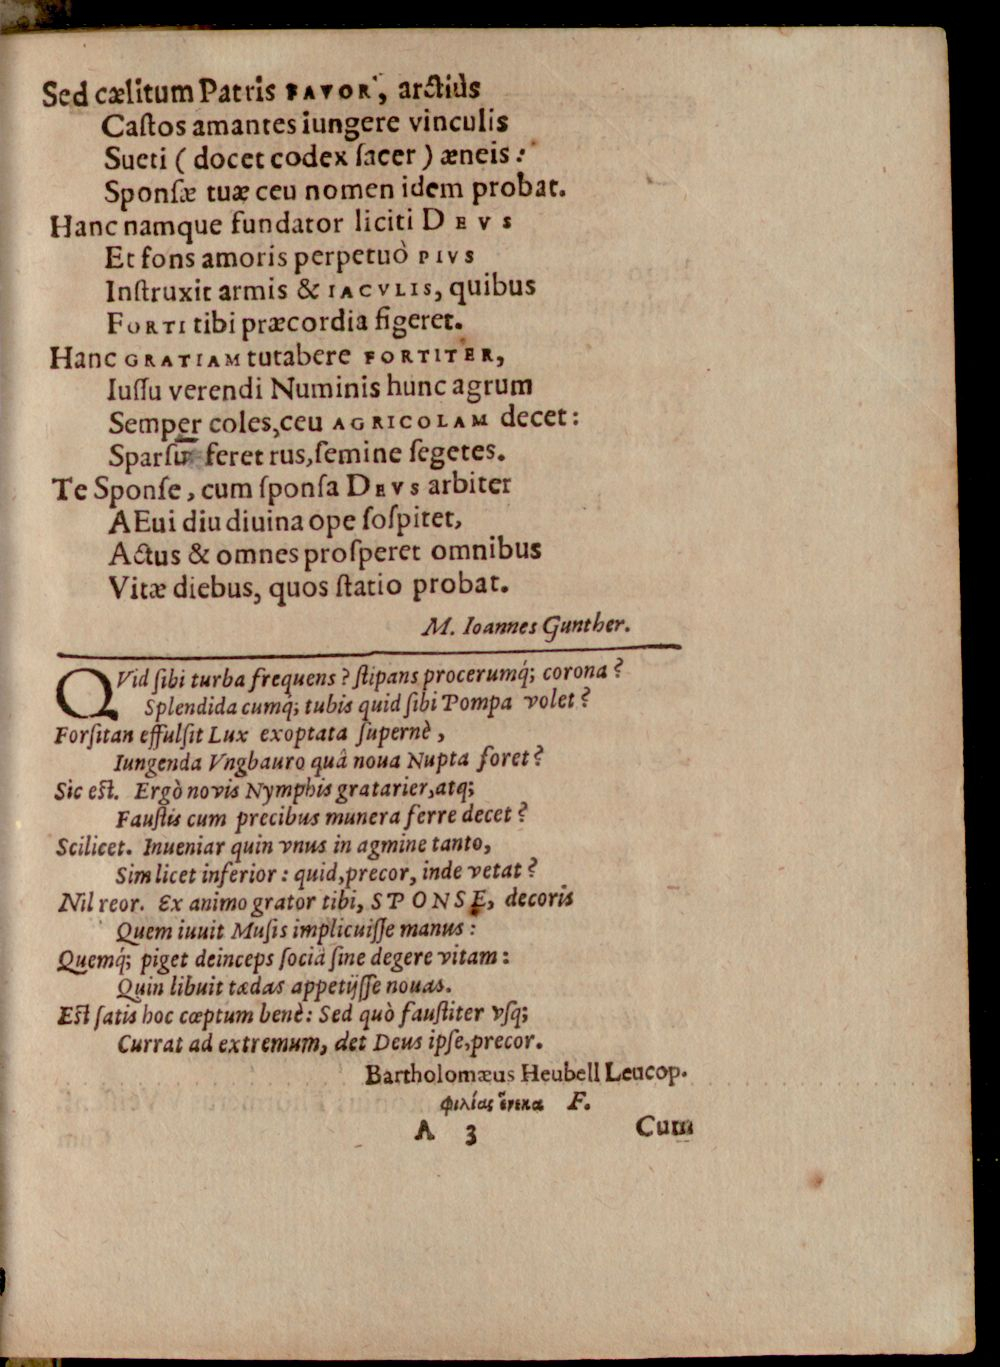 Sed cælitum Patris FAVOR, arctiùs
Caſtos amantes iungere vinculis
Sueti ( docet codex ſacer ) æneis :
Sponſæ tuæ ceu nomen idem probat.
Hanc namque fundator liciti DEVS
Et fons amoris perpetuò PIVS
Inſtruxit armis & IACVLIS, quibus
FORTI tibi præcordia figeret.
Hanc GRATIAM tutabere FORTITER,
Iuſſu verendi Numinis hunc agrum
Semper coles, ceu AGRICOLAM decet :
feret rus, ſemine ſegetes.
Te Sponſe, cum ſponſa DEVS arbiter
AEui diu diuina ope ſoſpitet,
Actus & omnes proſperet omnibus
Vitæ diebus, quos ſtatio probat.
M. Ioannes Gunther.
QVid ſibi turba frequens ? ſtipans procerumq́; corona ?
Splendida cumq́; tubis quid ſibi Pompa volet ?
Forſitan effulſit Lux exoptata ſupernè ,
Iungenda Vngbauro quâ noua Nupta foret ?
Sic eſt. Ergò novis Nymphis gratarier, atq;
Fauſtis cum precibus munera ferre decet ?
Scilicet. Inueniar quin vnus in agmine tanto,
Sim licet inferior : quid, precor, inde vetat ?
Nil reor. Ex animo grator tibi, SPONSE, decoris
Quem iuuit Muſis implicuiſſe manus :
Quemq́; piget deinceps ſociâ ſine degere vitam :
Quin libuit tædas appetijſſe nouas.
Eſt ſatis hoc cœptum benè : Sed quò fauſtiter vſq;
Currat ad extremum, det Deus ipſe, precor.
Bartholomæus Heubell Leucop.
φιλίας ἕνεκα F.
A 3 Cum